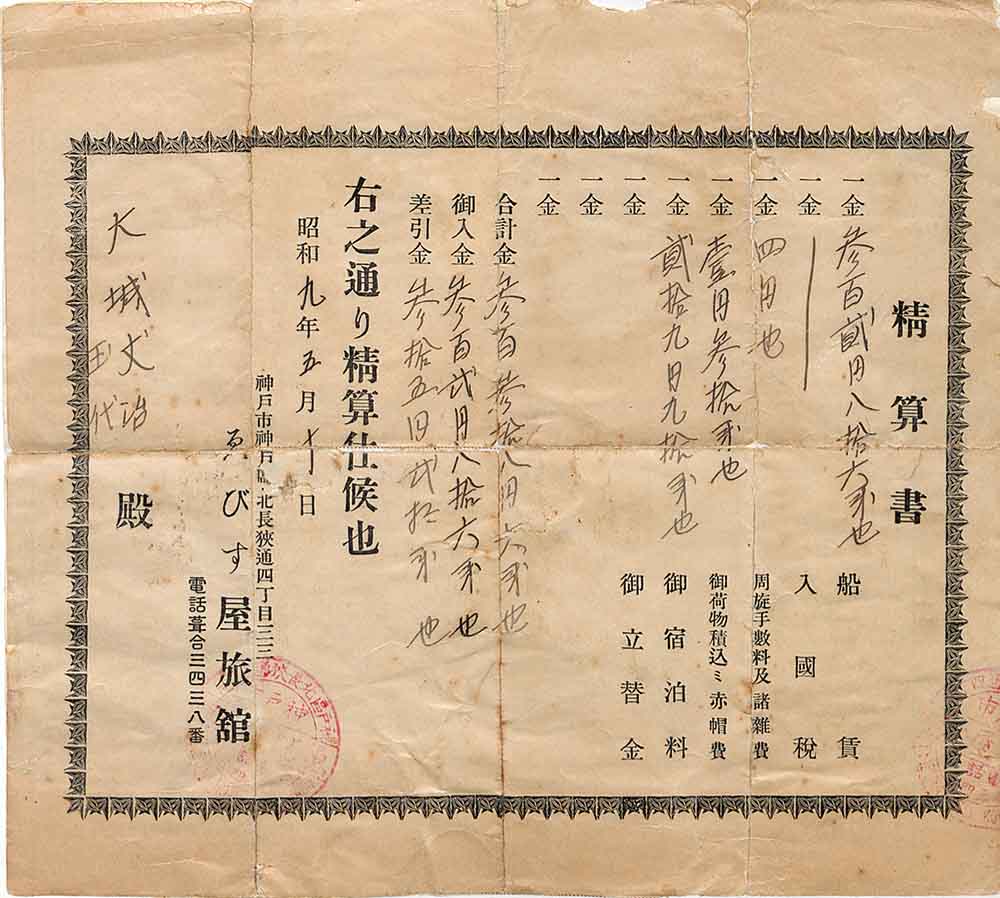 精算書
一金 参百貳円八拾六戋也 船賃
一金 入國税
一金 四円也 周旋手數料及諸雜費
一金 壹円参拾戋也 御荷物積込ミ赤帽費
一金 貳拾九円九拾戋也 御宿泊料
一金 御立替金
一金
一金
合計金 参百参拾八円六戋也
御入金 参百弐円八拾六戋也
差引金 参拾五円弐拾戋也
右之通り精算仕候也
昭和九年五月十一日
神戸市神戸區北長狹通四丁目三三
ゑびす屋旅舘
電話葺合三四三八番
大城
玉代 殿